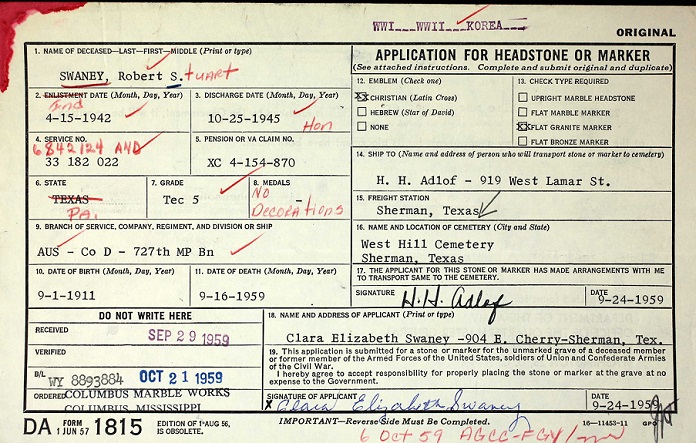 WWI WWII KOREA
ORIGINAL
1. NAME OF DECEASED—LAST—FIRST—MIDDLE (Print or type)
SWANEY, Robert S.tuart
APPLICATION FOR HEADSTONE OR MARKER
(See attached instructions. Complete and submit original and duplicate)
2. ENLISTMENT DATE (Month, Day, Year)
Ind
4-15-1942
3. DISCHARGE DATE (Month, Day, Year)
10-25-1945
Hon
12. EMBLEM (Check one)
CHRISTIAN (Latin Cross)
HEBREW (Star of David)
NONE
13. CHECK TYPE REQUIRED
UPRIGHT MARBLE HEADSTONE
FLAT MARBLE MARKER
FLAT GRANITE MARKER
FLAT BRONZE MARKER
4. SERVICE NO.
6842124 AND
33 182 022
5. PENSION OR VA CLAIM NO.
XC 4-154-870
14. SHIP TO (Name and address of person who will transport stone or marker to cemetery)
H. H. Adlof - 919 West Lamar St.
6. STATE
TEXAS
PA.
7. GRADE
Tec 5
8. MEDALS
-
No
Decorations
15. FREIGHT STATION
Sherman, Texas
9. BRANCH OF SERVICE, COMPANY, REGIMENT, AND DIVISION OR SHIP
AUS - Co D - 727th MP Bn
16. NAME AND LOCATION OF CEMETERY (City and State)
West Hill Cemetery
Sherman, Texas
10. DATE OF BIRTH (Month, Day, Year)
9-1-1911
11. DATE OF DEATH (Month, Day, Year)
9-16-1959
17. THE APPLICANT FOR THIS STONE OR MARKER HAS MADE ARRANGEMENTS WITH ME
TO TRANSPORT SAME TO THE CEMETERY.
SIGNATURE
H.H. Adlof
DATE
9-24-1959
DO NOT WRITE HERE
RECEIVED
SEP 29 1959
VERIFIED
B/L
WY 8893884 OCT 21 1959
ORDERED COLUMBUS MARBLE WORKS
COLUMBUS, MISSISSIPPI
18. NAME AND ADDRESS OF APPLICANT (Print or type)
Clara Elizabeth Swaney -904 E. Cherry-Sherman, Tex.
19. This application is submitted for a stone or marker for the unmarked grave of a deceased member
or former member of the Armed Forces of the United States, soldiers of Union and Confederate Armies
of the Civil War.
I hereby agree to accept responsibility for properly placing the stone or marker at the grave at no
expense to the Government.
SIGNATURE OF APPLICANT
X Clara Elizabeth Swaney
DATE
9-24-1959
DA FORM 1 JUN 57 1815
EDITION OF 1 AUG 56,
IS OBSOLETE.
IMPORTANT—Reverse Side Must Be Completed.
16—11453-11 GPO
6 Oct 59 AGCC-FGY/